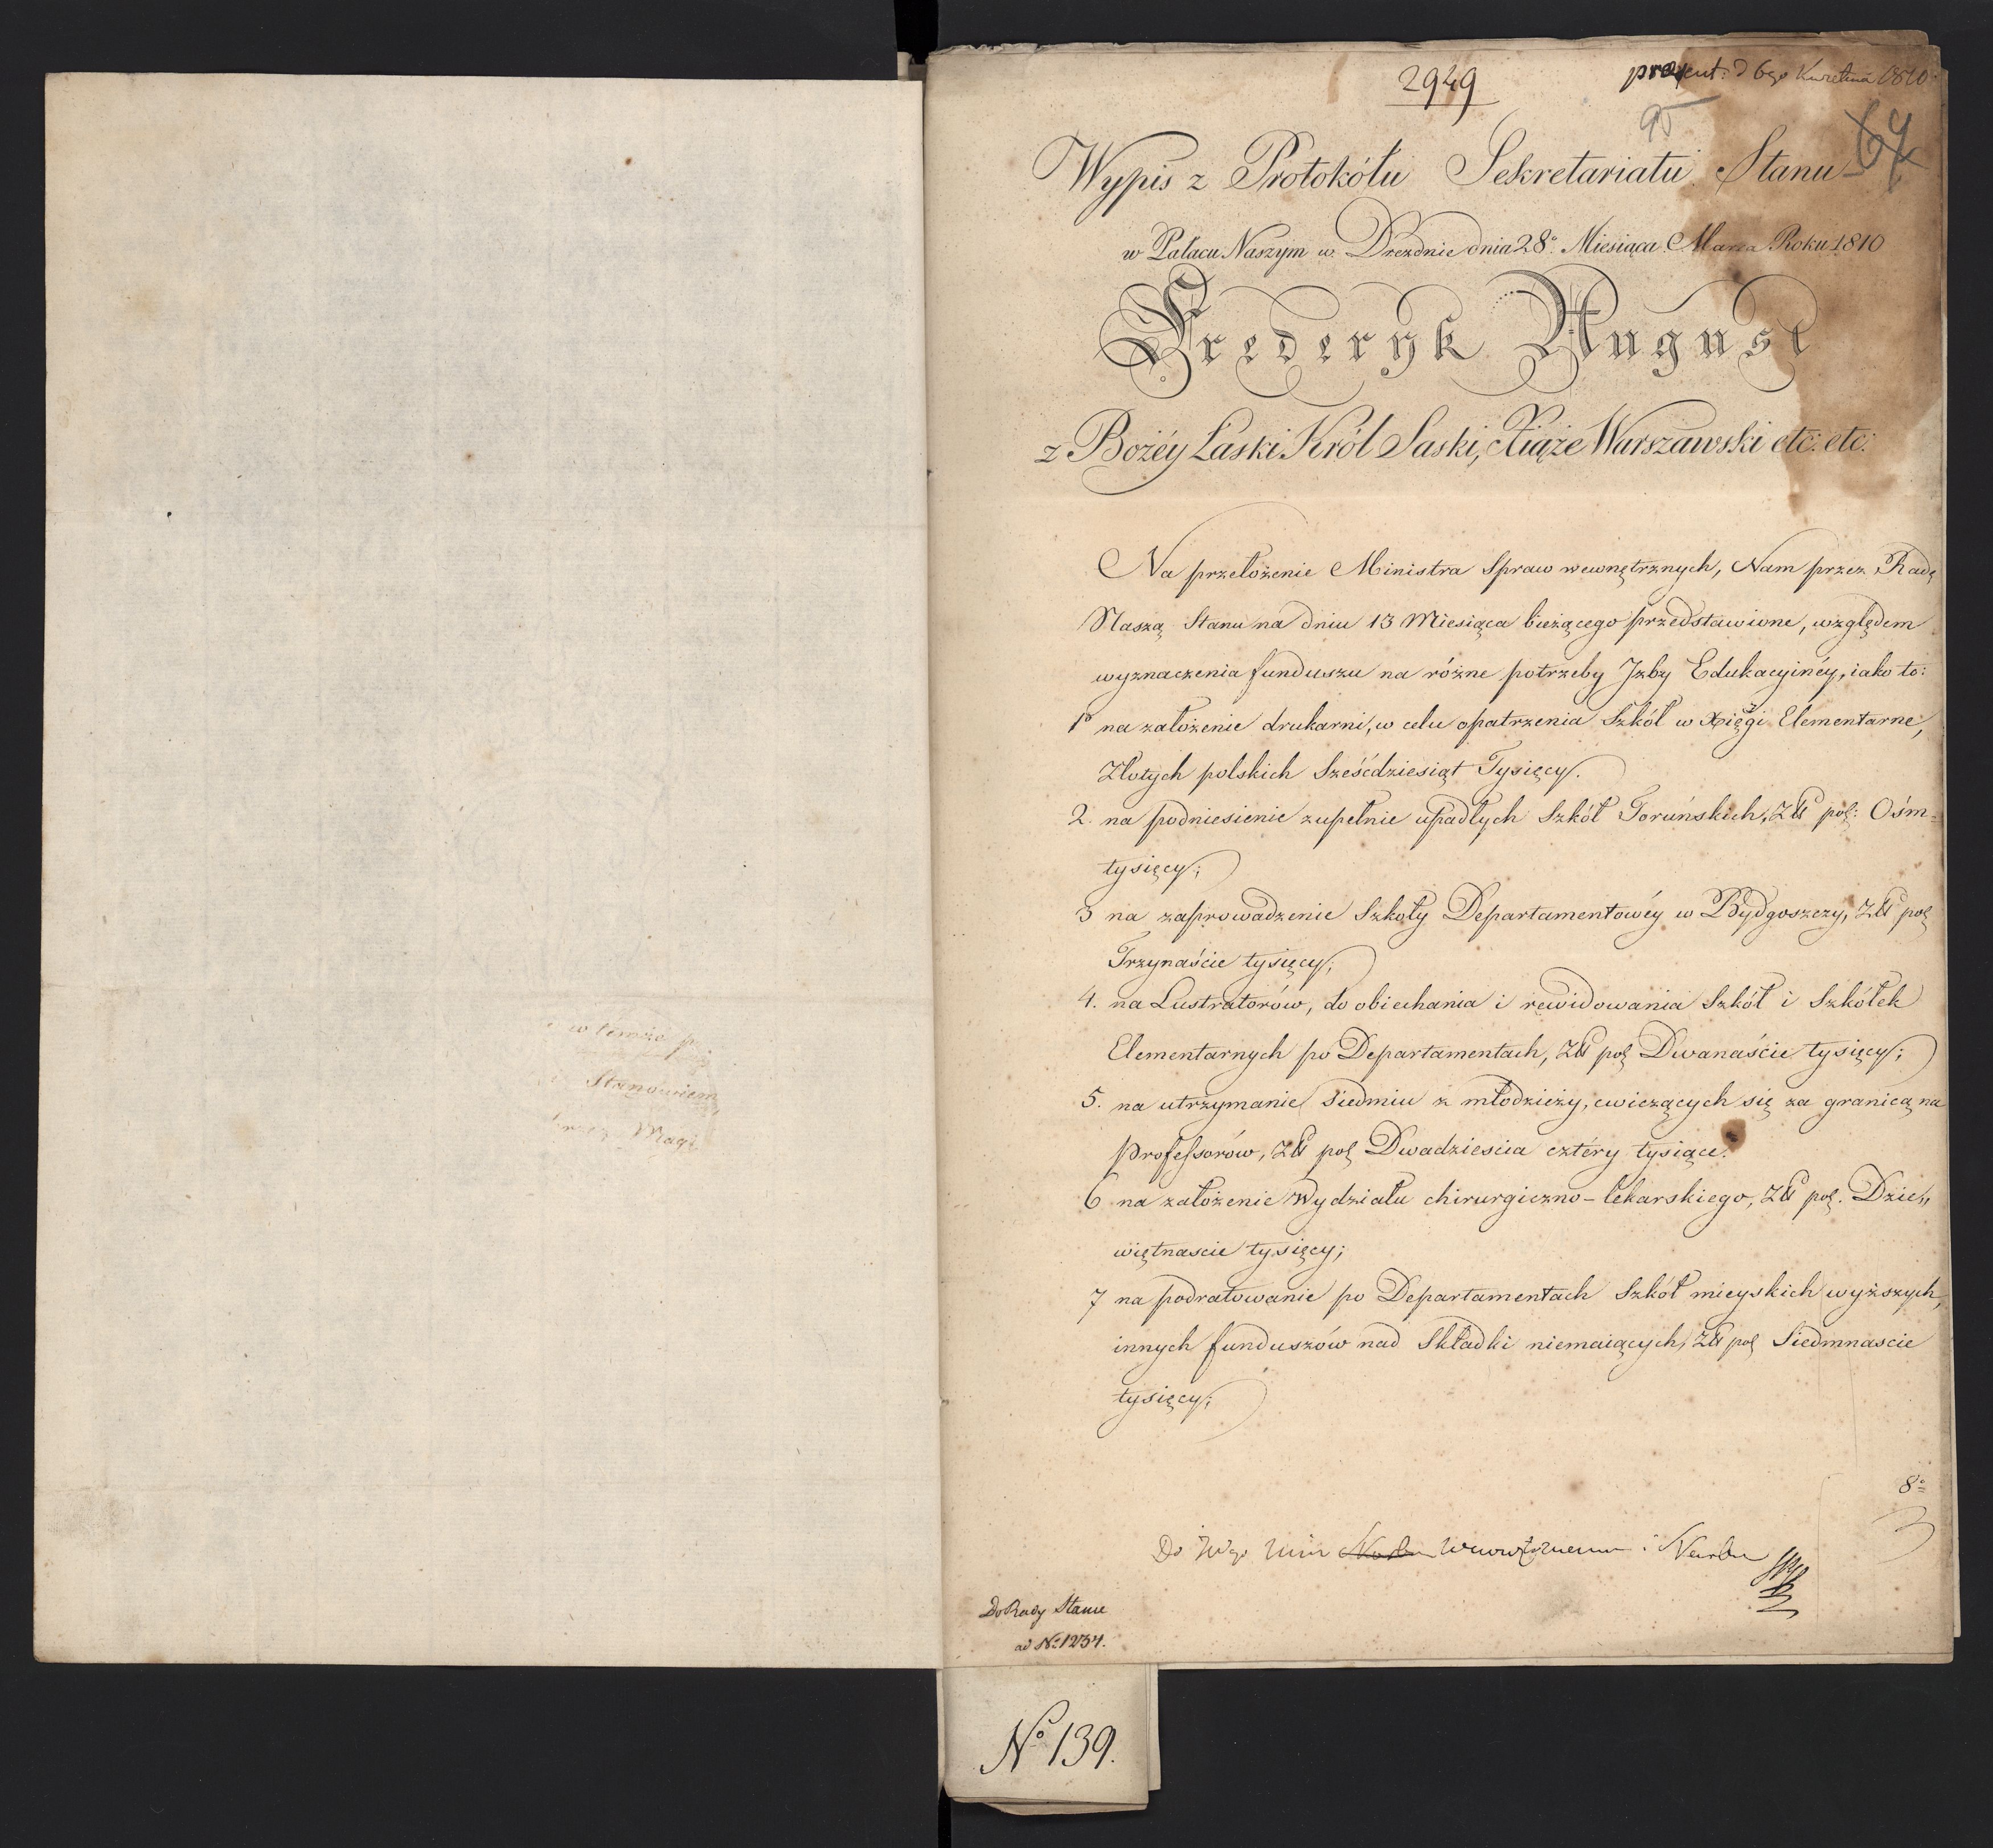 w temże
Stanowien
Magi
2949
praesent: d 6go Kwietnia 1810
95
64
Wypis z Protokółu Sekretariatu Stanu
w Pałacu Naszym w Dreznie dnia 28o Miesiąca Marca Roku 1810
Frederyk August
z Bożéy Łaski Król Saski, Xiąże Warszawski etc: etc:
Na przełożenie Ministra Spraw wewnętrznych, Nam przez Radę
Naszą Stanu na dniu 13 Miesiąca bieżącego przedstawione, względem
wyznaczenia funduszu na różne potrzeby Jzby Edukacyinéy, iako to:
1o na założenie drukarni, w celu opatrzenia Szkół w Xięgi Elementarne,
Złotych polskich Sześćdziesiąt Tysięcy.
2. na podniesienie zupełnie upadłych Szkół Toruńskich, Złł pol: Ośm=
tysięcy;
3 na zaprowadzenie Szkoły Departamentowéy w Bydgoszczy, Złł pol
Trzynaście tysięcy;
4. na Lustratorów, do obiechania i rewidowania Szkół i Szkółek
Elementarnych po Departamentach, Złł pol Dwanaście tysięcy;
5. na utrzymanie Siedmiu z młodzieży, cwiczących się za granicą na
Professorów, Złł pol Dwadziescia cztéry tysiące.
6 na założenie Wydziału chirurgiczno-lekarskiego, Złł pol. Dzie„
więtnascie tysięcy;
7 na podratowanie po Departamentach Szkół mieyskich wyższych,
innych funduszów nad Składki niemaiących, Złł pol Siedmnascie
tysięcy;
8o
Do Rady Stanu
ad No 1234.
No 139.